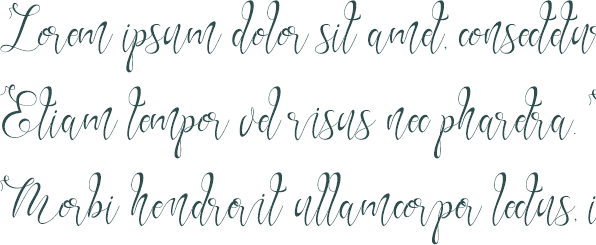 Lorem ipsum dolor sit amet, consectetur
Etiam tempor vel risus nec pharetra.
Morbi hendrerit ullamcorper lectus, i